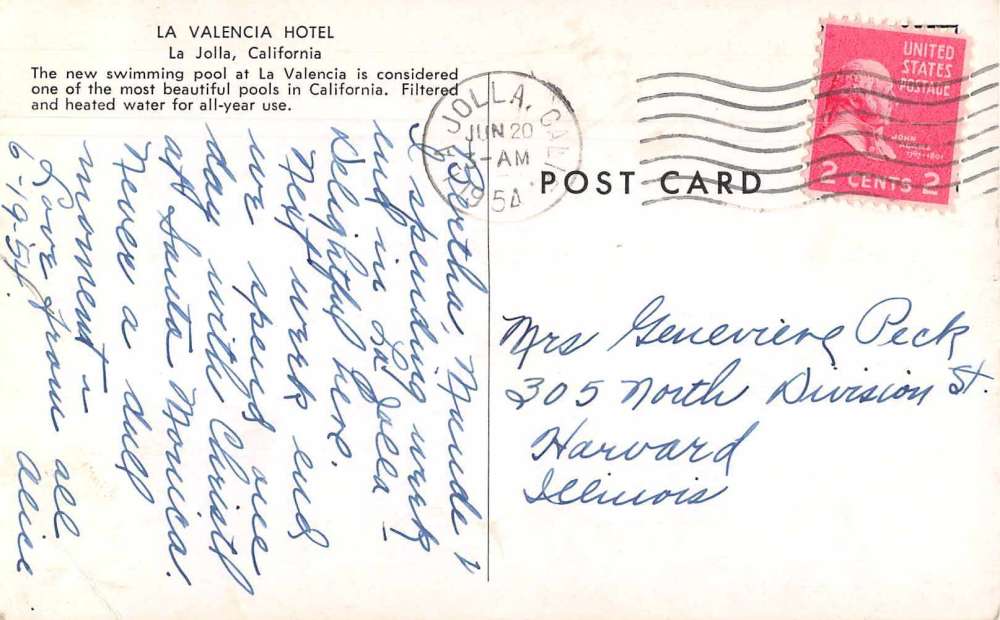 LA VALENCIA HOTEL
La Jolla, California
The new swimming pool at La Valencia is considered
one of the most beautiful pools in California. Filtered
and heated water for all-year use.
LA JOLLA, CALIF.
JUN 20
AM
1954
POST CARD
UNITED
STATES
POSTAGE
JOHN
ADAMS
1797-1801
2 CENTS 2
Bertha, Maude &
I spending week
end in La Jolla -
Delightful here.
Next week end
we spend one
day with Christ
at Santa Monica.
Never a dull
moment -
Love from all
6-19-54 Alice
Mrs Genevieve Peck
305 North Division St.
Harvard
Illinois